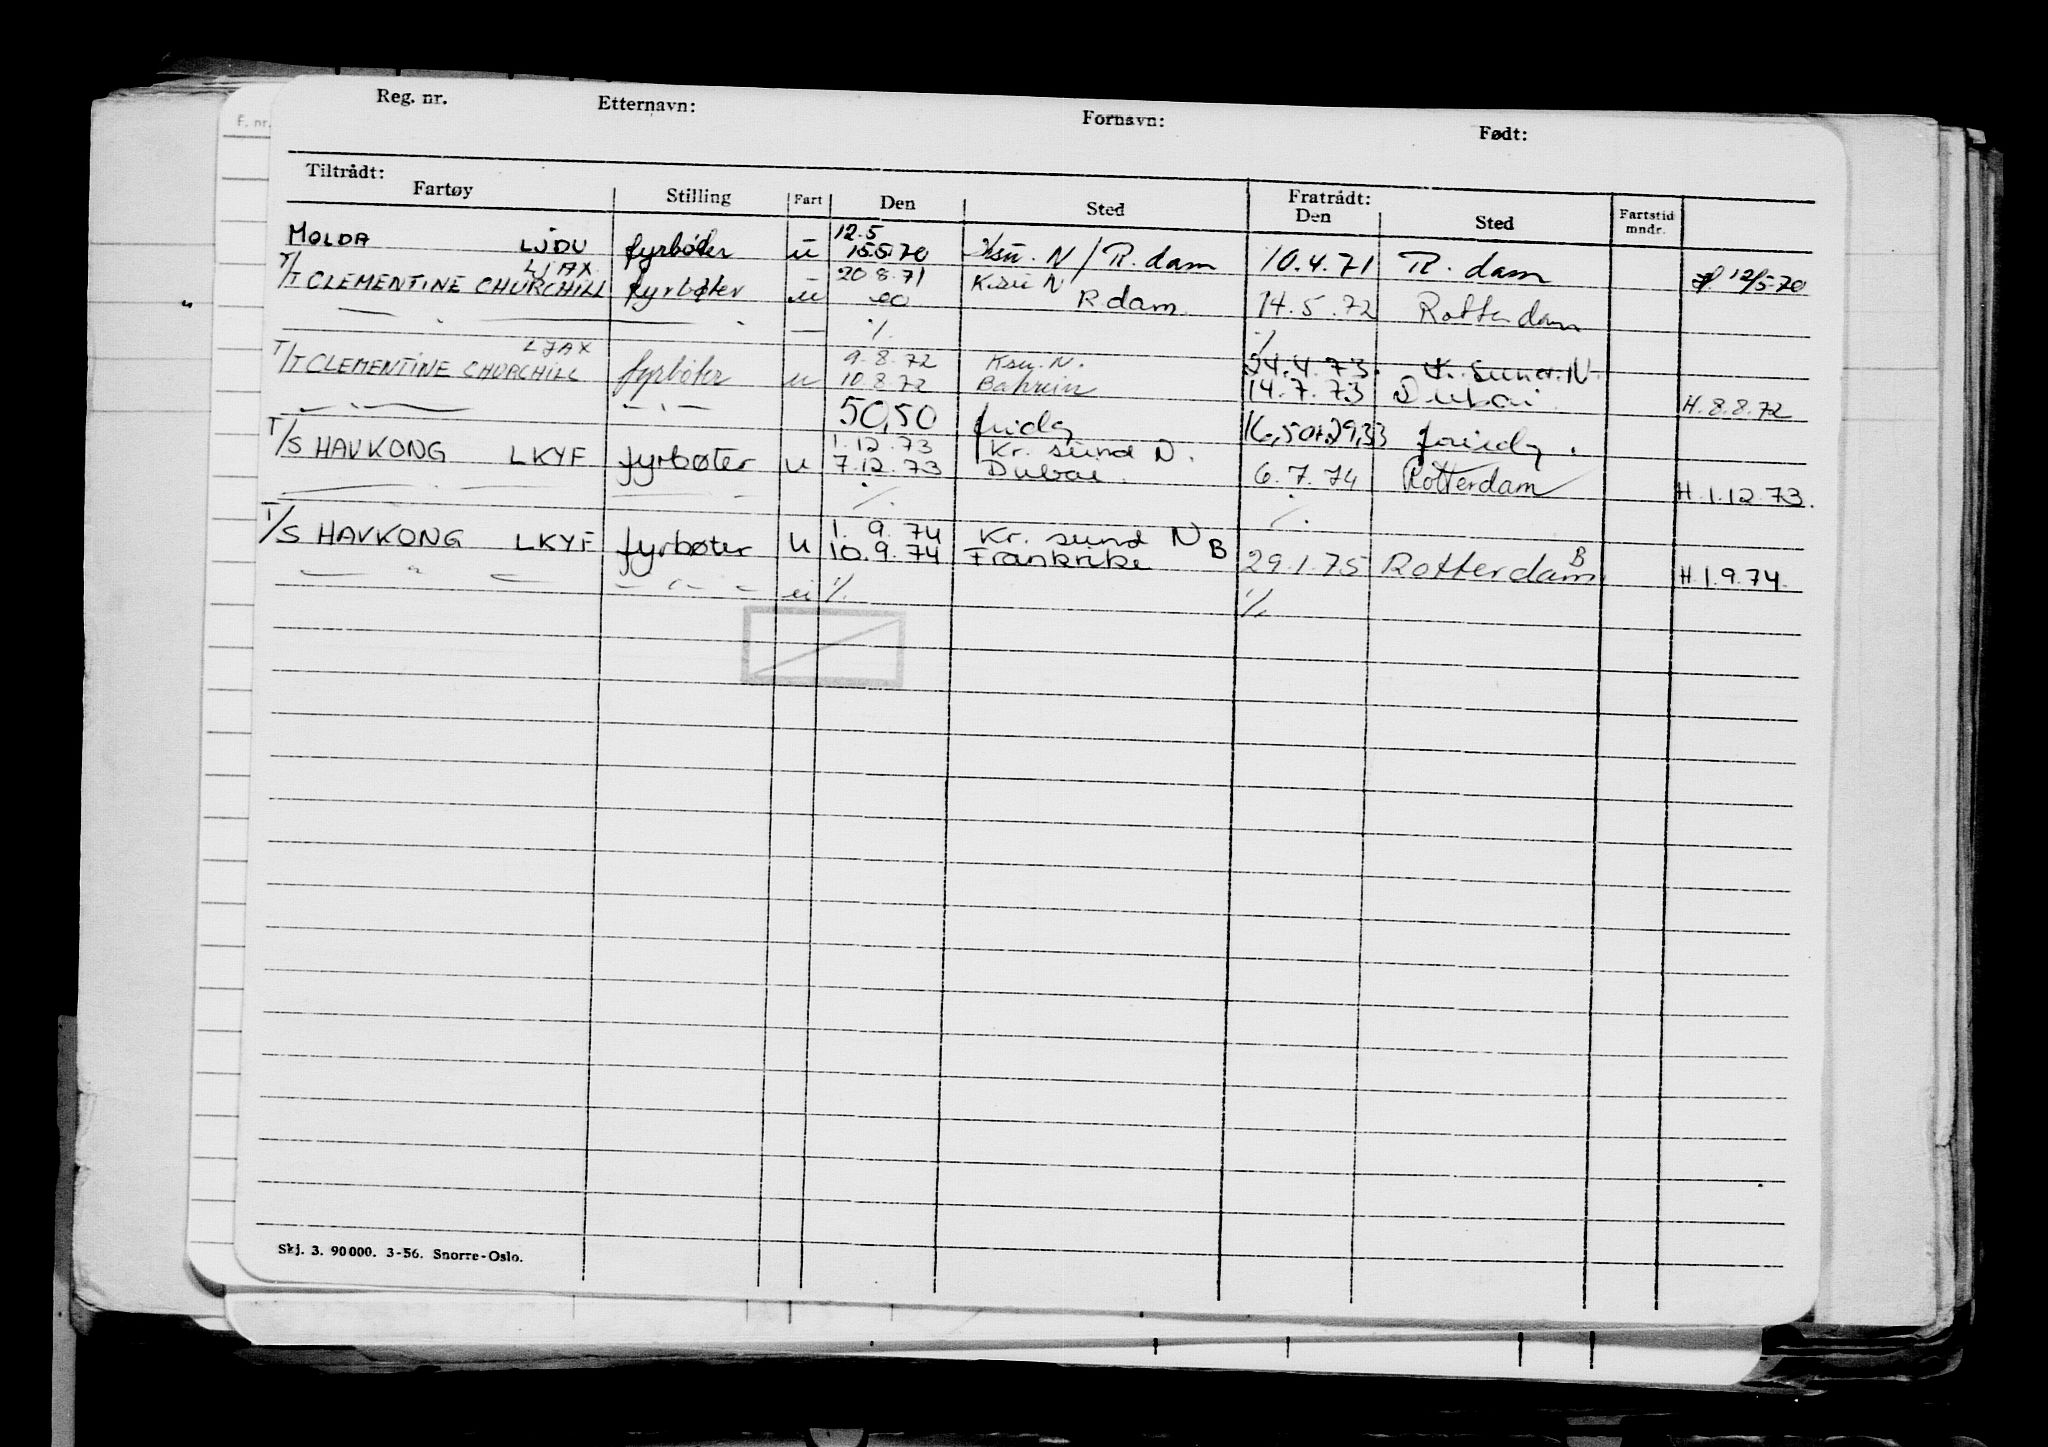 F. nr.
Reg. nr. Etternavn: Fornavn: Født:
Tiltrådt: Fratrådt:
Fartøy Stilling Fart Den Sted Den Sted Fartstid mndr.
12.5
MOLDA LJDU fyrbøter u 15.5.70 Ksu. N / R. dam 10.4.71 R. dam 12/5-70
LJAX 20.8.71 K.su N
T/T CLEMENTINE CHURCHILL fyrbøter u R dam. 14.5.72 Rotterdam
— " — — ./. ./.
LJAX 9.8.72 Ksu. N. 24.4.73. K. sund. N.
T/T CLEMENTINE CHURCHILL fyrbøter u 10.8.72 Bahrein 14.7.73 Dubai. H. 8.8.72
— " — — " — 50,50 fridg 16,50+29,33 fridg.
1.12.73 Kr. sund N.
T/S HAVKONG LKYF fyrbøter u 7.12.73 Dubai. 6.7.74 Rotterdam H. 1.12.73.
— " — — " — ./. ./.
1.9.74 Kr. sund N
T/S HAVKONG LKYF fyrbøter u 10.9.74 Frankrike B 29.1.75 Rotterdam B H. 1.9.74.
— " — — " — u ./. ./.
Skj. 3. 90000. 3-56. Snorre-Oslo.